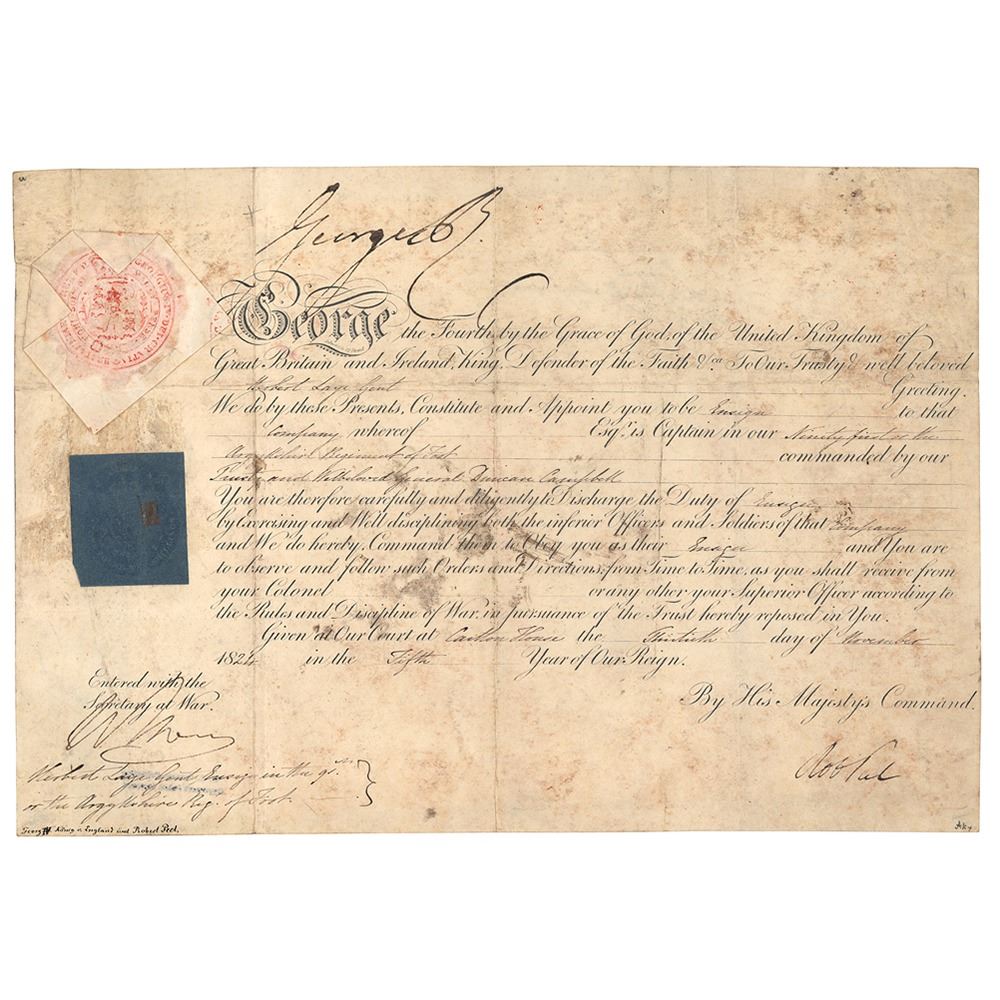 George R.
George the Fourth, by the Grace of God, of the United Kingdom of
Great Britain and Ireland, King, Defender of the Faith &ca. To Our Trusty & well beloved
Herbert Gent Greeting.
We do by these Presents, Constitute and Appoint you to be Ensign to that
Company, whereof Esqr. is Captain in our Ninety first or the
Argyllshire Regiment of Foot commanded by our
Trusty and Wellbeloved General Duncan Campbell
You are therefore carefully and diligently to Discharge the Duty of Ensign
by Exercising and Well disciplining both the inferior Officers and Soldiers of that Company
and We do hereby Command them to Obey you as their Ensign and You are
to observe and follow such Orders and Directions, from Time to Time, as you shall receive from
your Colonel or any other your Superior Officer according to
the Rules and Discipline of War, in pursuance of the Trust hereby reposed in You.
Given at Our Court at Carlton House the Thirtieth day of November
1824 in the Fifth Year of Our Reign.
By His Majesty's Command.
Entered with the
Secretary at War.
Rob Peel
Herbert Gent Ensign in the 91st.
or the Argyllshire Reg. of Foot
George IV King of England and Robert Peel.